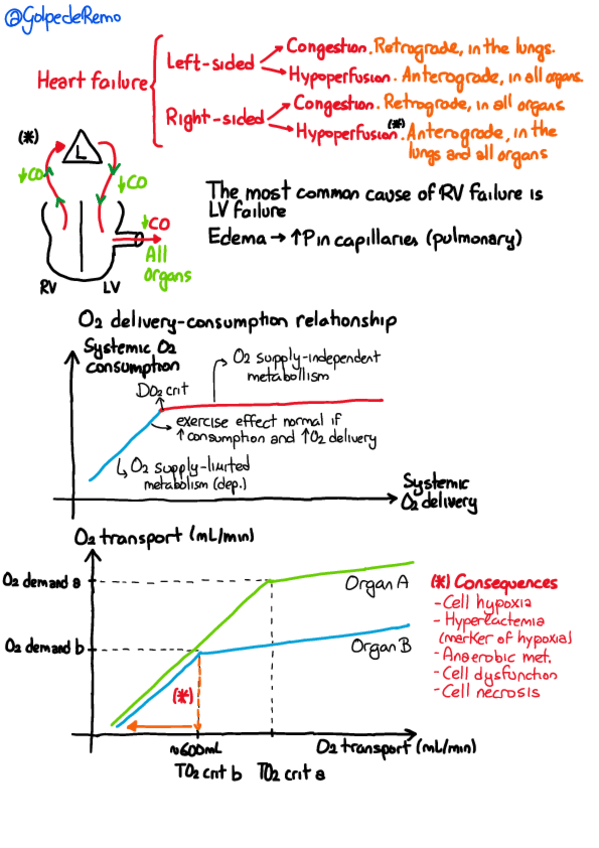 @GolpedeRemo
Heart failure
Left-sided
Congestion. Retrograde, in the lungs.
Hypoperfusion. Anterograde, in all organs.
Right-sided
Congestion. Retrograde, in all organs
Hypoperfusion. (*) Anterograde, in the
lungs and all organs
(*)
L
↓CO
↓CO
↓CO
All
organs
RV
LV
The most common cause of RV failure is
LV failure
Edema → ↑P in capillaries (pulmonary)
O2 delivery-consumption relationship
Systemic O2
consumption
O2 supply-independent
metabollism
DO2 crit
exercise effect normal if
↑consumption and ↑O2 delivery
O2 supply-limited
metabolism (dep.)
Systemic
O2 delivery
O2 transport (mL/min)
O2 demand a
Organ A
O2 demand b
Organ B
(*)
(*) Consequences
-Cell hypoxia
-Hyperlactemia
(marker of hypoxia)
-Anaerobic met.
-Cell dysfunction
-Cell necrosis
≈600mL
O2 transport (mL/min)
TO2 crit b
TO2 crit a